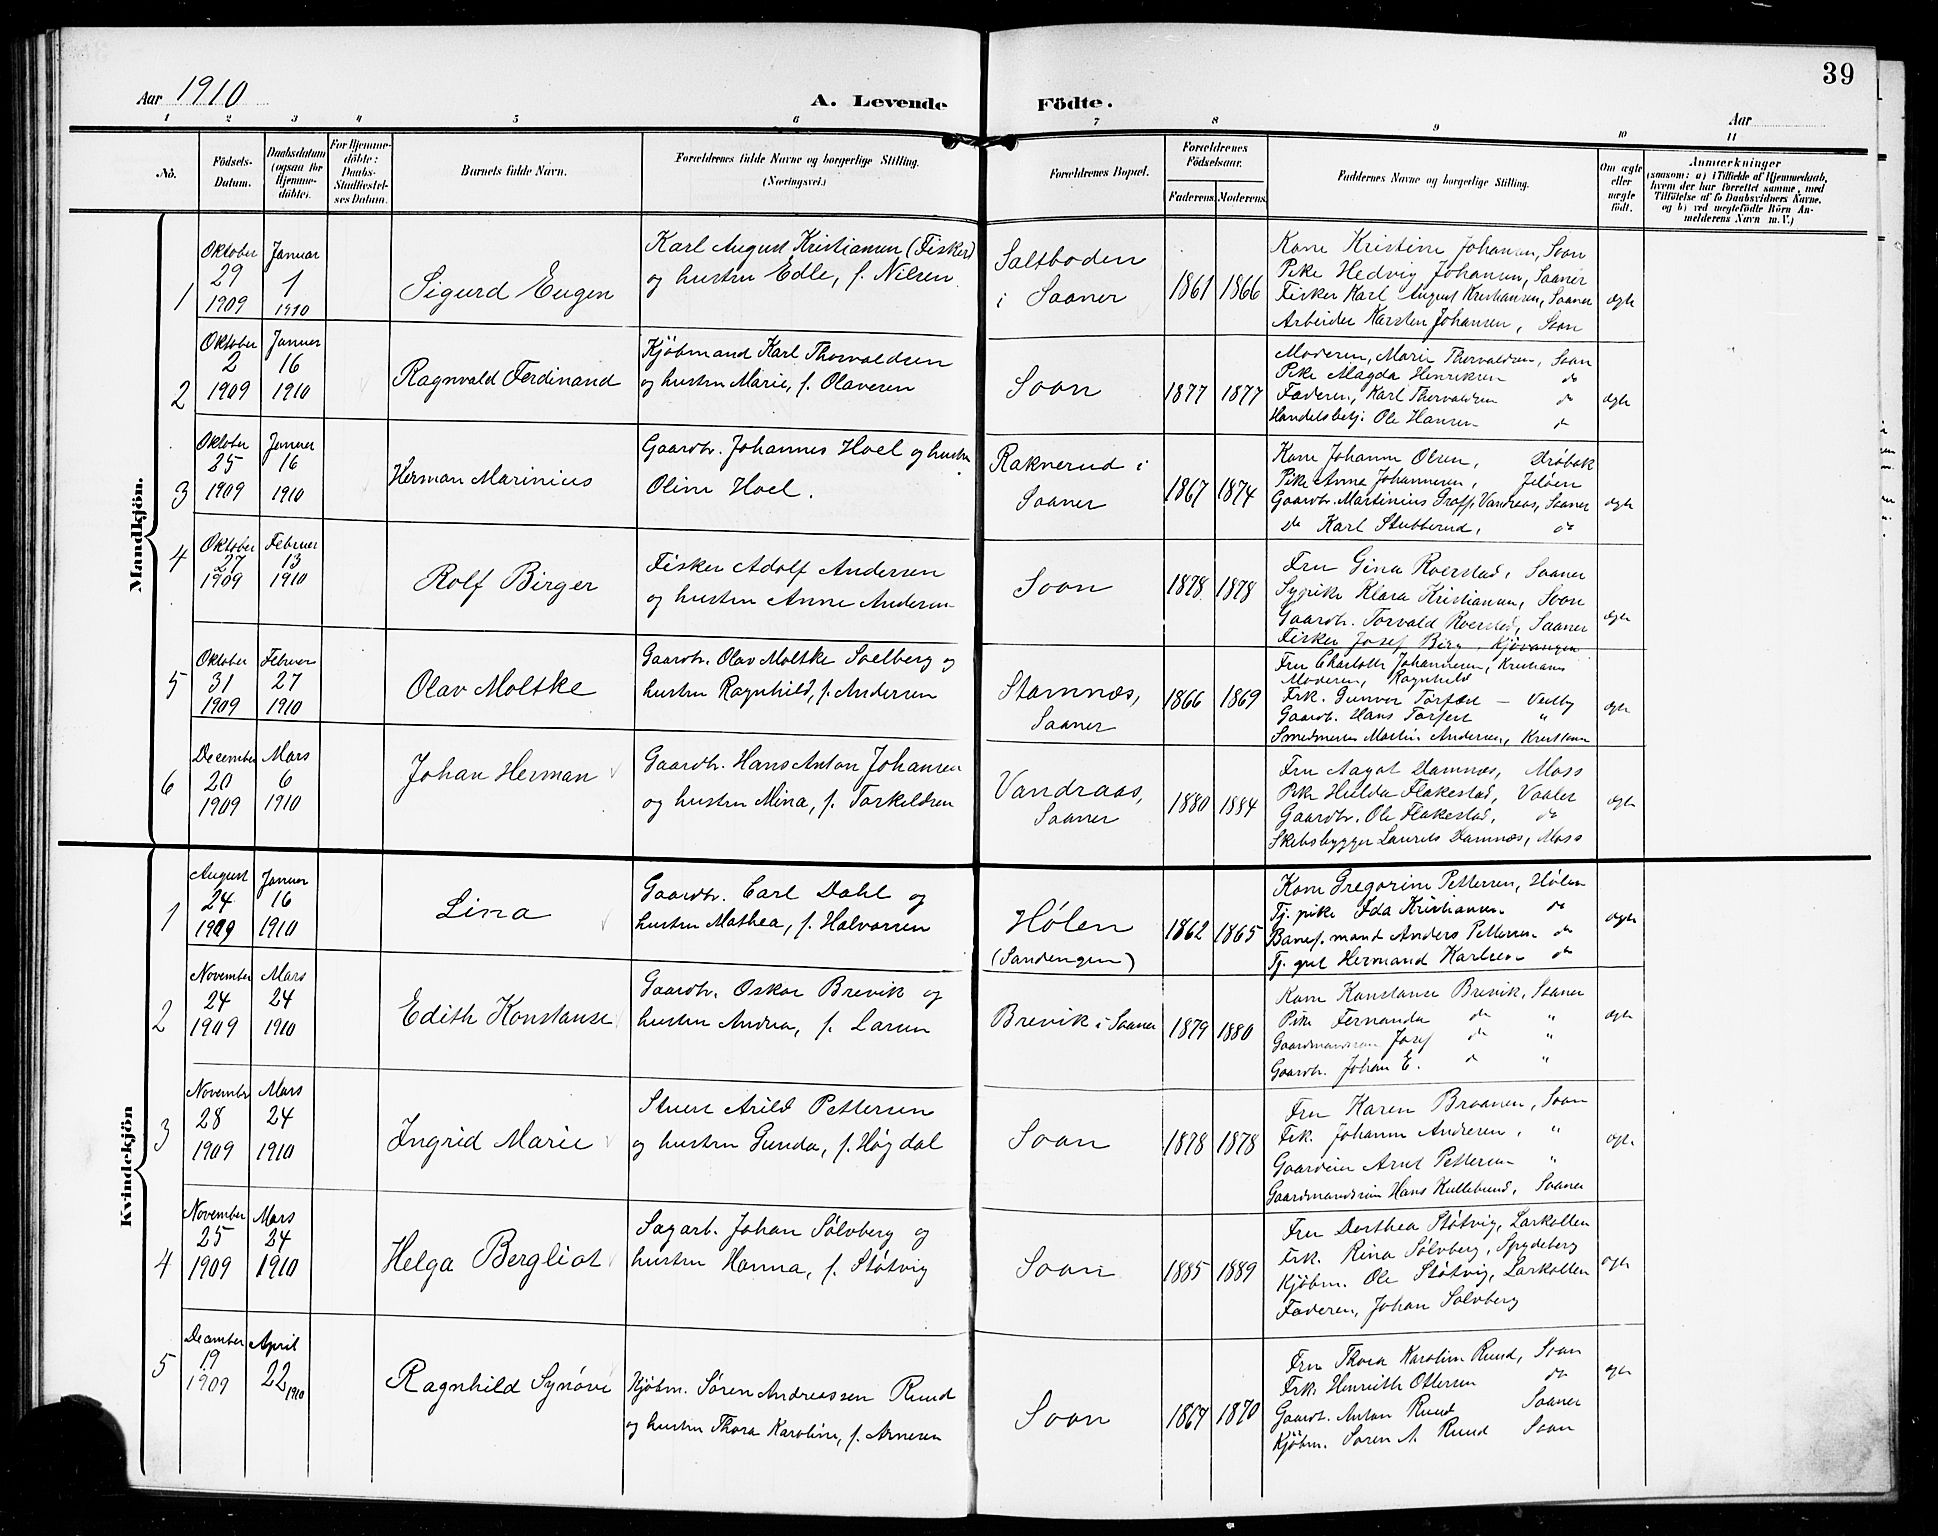 39
Aar 1910
A. Levende Födte.
Aar
1 2 3 4 5 6 7 8 9 10 11
No.
Födsels-
Datum.
Daabsdatum
(ogsaa for
Hjemme-
döbte).
For Hjemme-
döbte:
Daabs-
Stadfæstel-
ses Datum.
Barnets fulde Navn.
Forældrenes fulde Navne og borgerlige Stilling.
(Næringsvei.)
Forældrenes Bopæl.
Forældrenes
Födselsaar.
Faderens. Moderens.
Faddernes Navne og borgerlige Stilling.
Om ægte
eller
uægte
født.
Anmærkninger
(saasom: a) i Tilfælde af Hjemmedaab,
hvem der har forrettet samme, med
Tilföielse af to Daabsvidners Navne,
og b) ved uægtefödte Börn An-
melderens Navn m. V.)
Mandkjön.
1
Oktober
29
1909
Januar
1
1910
Sigurd Eugen
Karl August Kristiansen (Fisker)
og hustru Edle, f. Nilsen
Saltboden
i Saaner
1861 1866
Kone Kristine Johansen, Soon
Pike Hedvig Johansen, Saaner
Fisker Karl August Kristiansen, Saaner
Arbeider Karsten Johansen, Soon
ægte
2
Oktober
2
1909
Januar
16
1910
Ragnvald Ferdinand
Kjöbmand Karl Thorvaldsen
og hustru Marie, f. Olavesen
Soon
1877 1877
Moderen, Marie Thorvaldsen, Soon
Pike Magda Henriksen do
Faderen, Karl Thorvaldsen do
Handelsbetj. Ole Hansen do
ægte
3
Oktober
25
1909
Januar
16
1910
Herman Marinius
Gaardbr. Johannes Hoel og hustru
Oline Hoel.
Raknerud i
Saaner
1867 1874
Kone Johanne Olsen, Drøbak
Pike Anna Johannesen, Jeløen
Gaardbr. Martinius Graff, Vandraas, Saaner
do Karl Stubberud, do
ægte
4
Oktober
27
1909
Februar
13
1910
Rolf Birger
Fisker Adolf Andersen
og hustru Anne Andersen
Soon
1878 1878
Fru Gina Roerstad, Saaner
Sypike Klara Kristiansen, Soon
Gaardbr. Torvald Roerstad, Saaner
Fisker Josef Berg, Kjøvangen
ægte
5
Oktober
31
1909
Februar
27
1910
Olav Moltke
Gaardbr. Olav Moltke Soelberg og
hustru Ragnhild, f. Andersen
Stamnæs,
Saaner
1866 1869
Fru Charlotte Johannesen, Kristiania
Moderen, Ragnhild
Frk. Gunvor Torfæst — Vestby
Gaardbr. Hans Torfest "
Smedmester Martin Andersen, Kristiania
ægte
6
December
20
1909
Mars
6
1910
Johan Herman
Gaardbr. Hans Anton Johansen
og hustru Mina, f. Torkeldsen
Vandraas,
Saaner
1880 1884
Fru Aagot Damnæs, Moss
Pike Hulda Flakestad, Vaaler
Gaardbr. Ole Flakestad, do
Skibsbygger Laurits Damnæs, Moss
ægte
Kvindekjön
1
August
24
1909
Januar
16
1910
Lina
Gaardbr. Carl Dahl og
hustru Mathea, f. Halvorsen
Hølen
(Sandengen)
1862 1865
Kone Gregorine Pettersen, Hølen
Tj. pike Ida Kristiansen do
Banef. mand Anders Pettersen do
Tj. gut Hermand Karlsen do
ægte
2
November
24
1909
Mars
24
1910
Edith Konstanse
Gaardbr. Oskar Brevik og
hustru Andrea, f. Larsen
Brevik i Saaner
1879 1880
Kone Konstanse Brevik, Saaner
Pike Fernanda do "
Gaardmandssøn Josef do "
Gaardbr. Johan E. do "
ægte
3
November
28
1909
Mars
24
1910
Ingrid Marie
Stuert Arild Pettersen
og hustru Gunda, f. Høgdal
Soon
1878 1878
Fru Karen Braanen, Soon
Frk. Johanne Andresen, "
Gaardeier Arnt Pettersen "
Gaardmandssøn Hans Kullebund, Saaner
ægte
4
November
25
1909
Mars
24
1910
Helga Bergliot
Sagarb. Johan Sølvberg og
hustru Hanna, f. Støtvig
Soon
1885 1889
Fru Dorthea Støtvig, Larkollen
Frk. Rina Sølvberg, Spydeberg
Kjöbm. Ole Støtvig, Larkollen
Faderen, Johan Solvberg
ægte
5
December
19
1909
April
22
1910
Ragnhild Synöve
Kjöbm. Søren Andreassen Ruud
og hustru Thora Karoline, f. Arnesen
Soon
1867 1870
Fru Thora Karoline Ruud, Soon
Frk. Henriette Ottersen do
Gaardbr. Anton Ruud Saaner
Kjøbm. Soren A. Ruud Soon
ægte